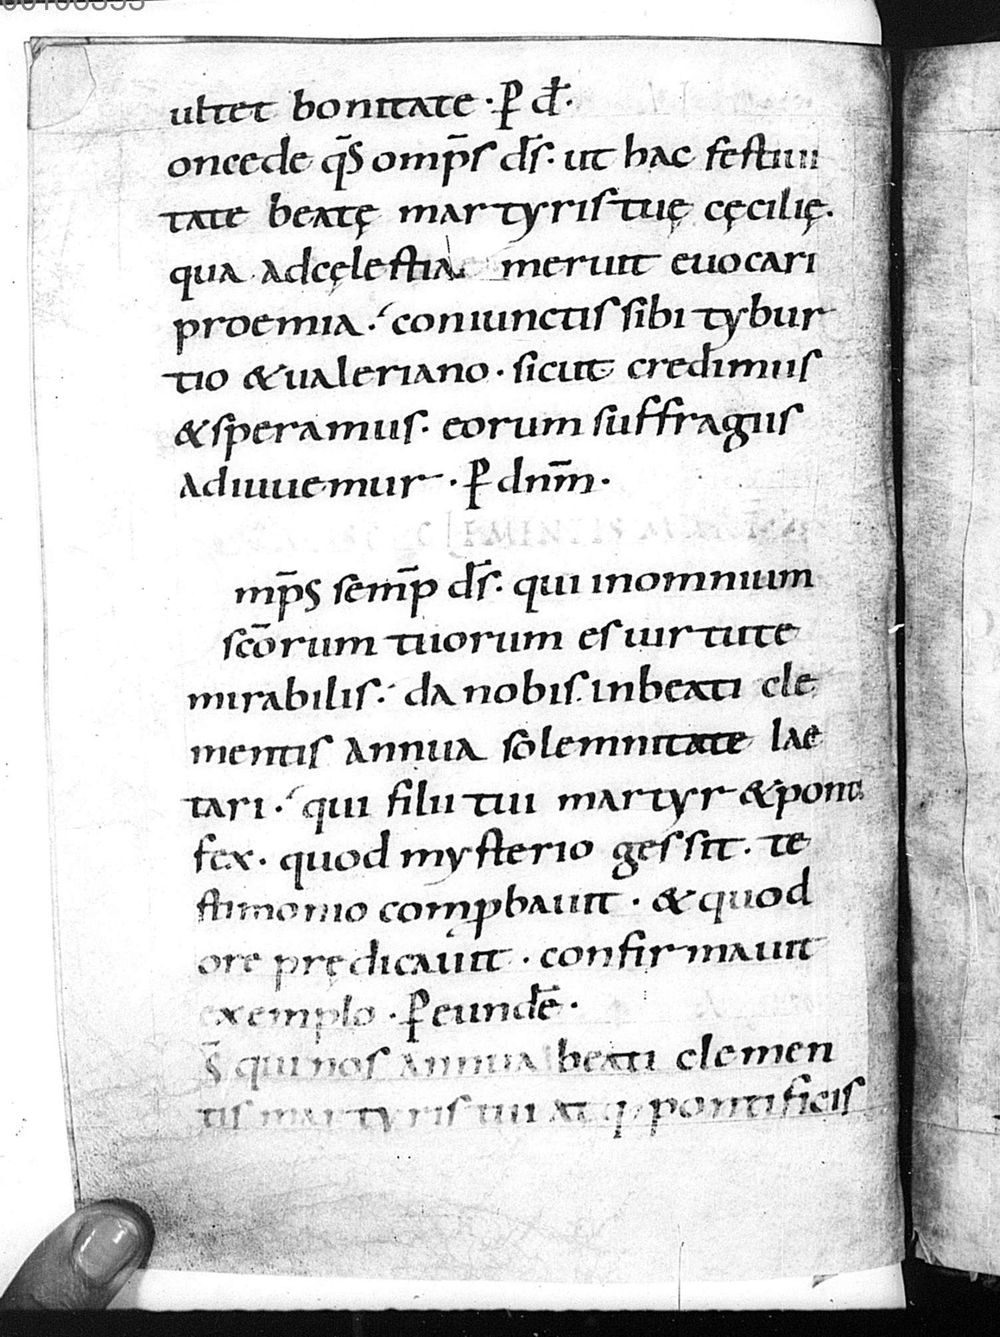 ultet bonitate · ꝑ dꝉ·
oncede q̄s omp̄s d̄s · ut hac festiui
tate beatę martyris tuę cęcilię.
qua adcęlestia. meruit euocari
proemia · coniunctis sibi tybur
tio & ualeriano · sicut credimus
& speramus · eorum suffragiis
adiuuemur · ꝑ dnm̄ ·
CLEMENTIS
mp̄s semp̄ d̄s · qui inomnium
scōrum tuorum es uirtute
mirabilis · da nobis · inbeati cle
mentis annua solemnitate lae
tari · qui filii tui martyr & ponti
fex · quod mysterio gessit · te
stimonio comꝓbauit · & quod
ore prędicauit · confirmauit
exemplo · ꝑ eundē ·
s̄ qui nos annua beati clemen
tis martyris tui atq; pontificis